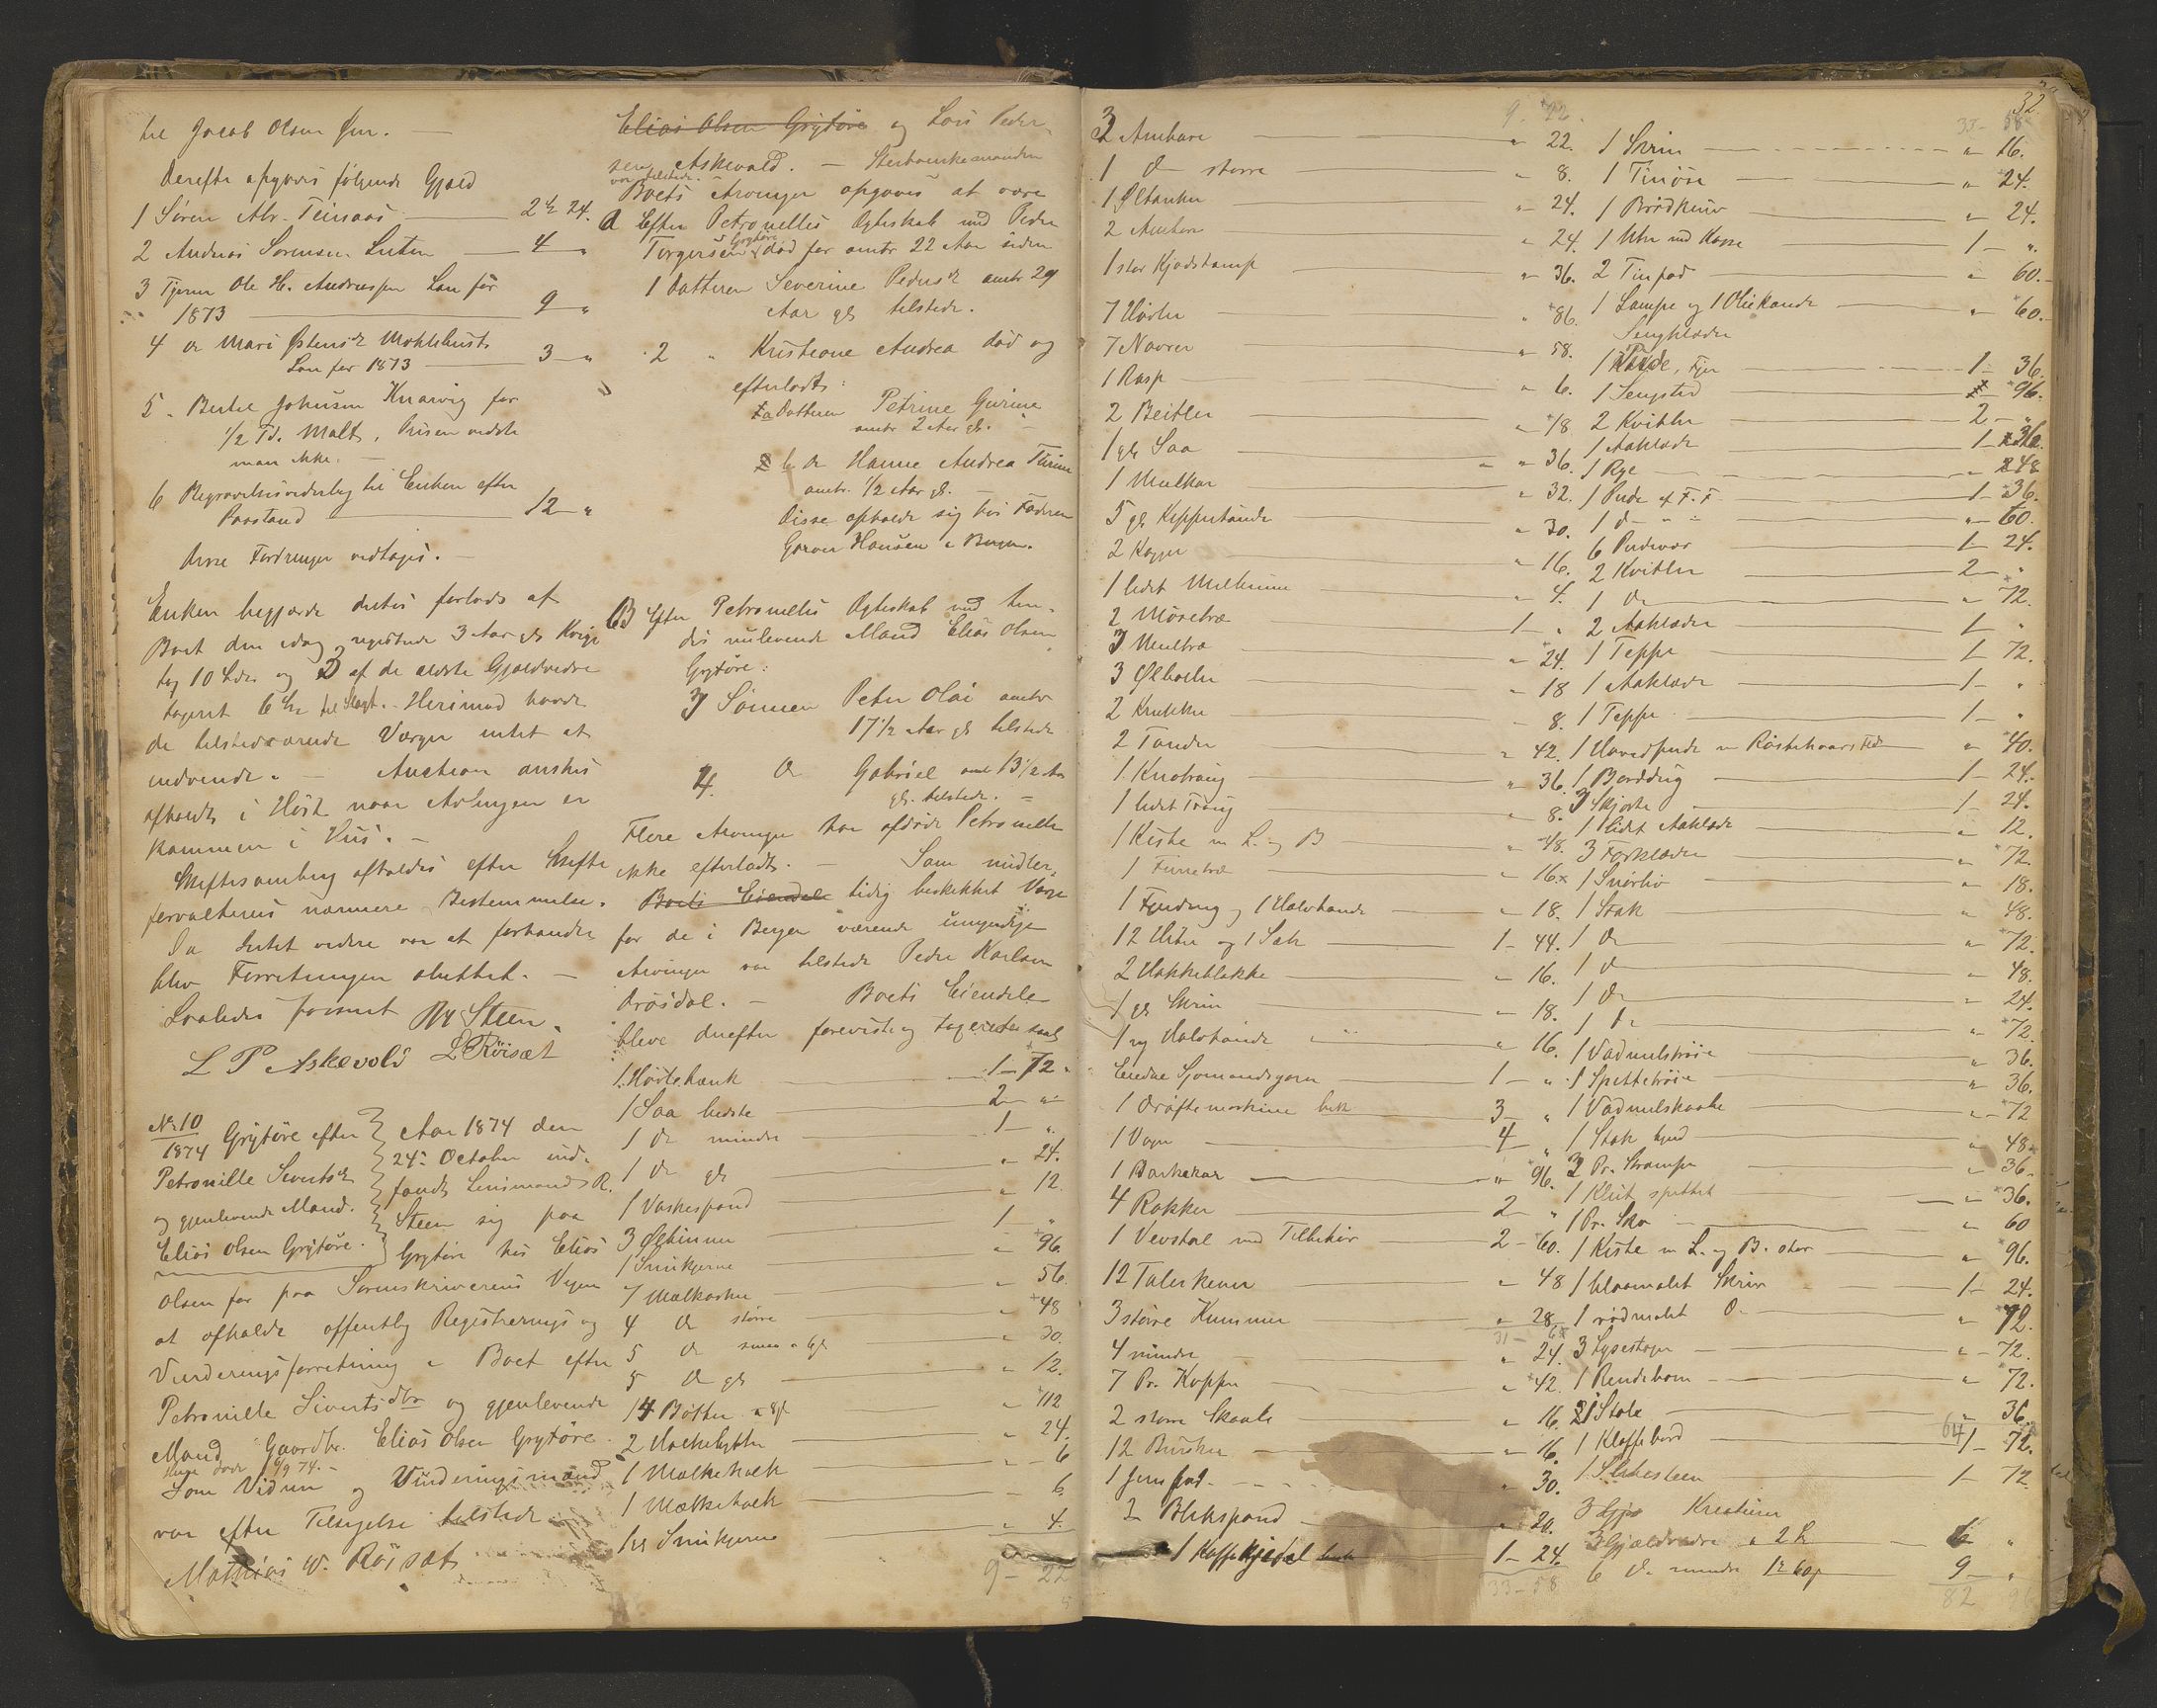 til Jacob Olsen Øen. —
Derefter opgaves følgende Gjæld
1 Søren Abr. Teinaas — 2 24.
2 Andreas Sørensen — 4 "
3 Tjener Ole H. Andreassen Løn for
1873 — 9 "
4 Do Mari Østensd
Løn for 1873 — 3 "
5. Bertel Johnsen Knarvig for
1/2 Td. Malt, Prisen vidste
man ikke. —
6 Begravelsesvederlag til Enken efter
Paastand — 12 "
Disse Fordringer vedtages. —
Enken begjærede derhos forlods af
Boet den idag registrerede 3 Aar gl Kvige
tag 10 Spd. og 2 af de ældste Gjældvedre
taxeret 6 til Slagt. Herimod havde
de tilstedeværende Værger intet at
indvende. — Auction ønskes
afholdt i Høst naar Avlingen er
kommen i Hus. —
Skiftesamling afholdes efter Skifte
forvalterens nærmere Bestemmelse.
Da Intet videre var at forhandle
blev Forretningen sluttet. —
Saaledes passeret Steen.
L P Askevold L Röisæt
No 10
1874 Grytøre efter
Petronille Sivertsd
og gjenlevende Mand.
Elias Olsen Grytøre.
Aar 1874 den
24. October ind-
fandt Lensmand R.
Steen sig paa
Grytøre hos Elias
Olsen for paa Sorenskriverens Vegne
at afholde offentlig Registrerings og
Vurderingsforretning i Boet efter
Petronille Sivertsdtr og gjenlevende
Mand Gaardbr. Elias Olsen Grytøre.
døde 1/9 74. —
Som Vidner og Vurderingsmænd
var efter Tilsigelse tilstede
Mathias W. Röisæt
Elias Olsen Grytøre og Lars Peder-
sen Askevold. — Sterboenkemanden
var tilstede.
Boets Arvinger opgaves at være
A Efter Petronelles Ægteskab med Peder
Torgersen Grytøre død for omtr 22 Aar siden
1 Datteren Severine Pedersd omtr 29
Aar gl tilstede.
2 " Kristiane Andrea død og
efterladt:
a Datteren Petrine Gurine
omtr 2 Aar gl. —
b Do Hanne Andrea Thrine
omtr. 1/2 Aar gl. —
Disse opholde sig hos Faderen
Garver Hansen i Bergen.
B Efter Petronelles Ægteskab med hen-
des nulevende Mand Elias Olsen
Grytøre:
3 Sønnen Peter Olai omtr
17 1/2 Aar gl tilstede
4. Do Gabriel omt 13 1/2 Aar
gl. tilstede. —
Flere Arvinger har afdøde Petronelle
ikke efterladt. — Som midler-
Boets Eiendele tidig beskikket Værge
for de i Bergen værende umyndige
Arvinger var tilstede Peder Karlsen
Drøsdal. — Boets Eiendele
bleve derefter foreviste og taxerede saal
1 Høvlebænk — 1 — 72.
1 Saa bedste — 2 — "
1 Do mindre — 1 — "
1 Do gl — " 24.
1 Vaskespand — " 12.
3 Øltinner — 1 — "
1 Smikjerne — " 96.
7 Mælkekoller — " 56.
4 Do større — " 48
5 Do — " 30.
5 Do gl — " 12.
14 Bøtter — " 112
2 — " 24.
1 Mælkeholk — " 6
1 Mælkeholk — " 6.
1 gl Smikjerne — " 4.
9 — 22
32
9 - 22.
3 Ambare — " 22.
1 Do større — " 8.
1 Ølanker — " 24.
2 Ambare — " 24.
1 stor Kjødstamp — " 36.
7 Høvler — " 86.
7 Navrer — " 58.
1 Rasp — " 6.
2 Beitler — " 18
1 gl Saa — " 36.
1 Mulkar — " 32.
5 gl Kippertønder — " 30.
2 Kagger — " 16.
1 lidet — " 4.
2 Mösetræ — 1 — "
3 — " 24.
3 Ølboller — " 18
2 Krukker — " 8.
2 Tønder — " 42.
1 Knatraug — " 36.
1 lidet Traug — " 8.
1 Kiste m L. og B — " 48.
1 — " 16.
1 Fending og 1 Halvtønde — " 18.
12 og 1 Sæk — 1 — 44.
2 Hakkeblakke — " 16.
1 gl Skrin — " 18.
1 ny Halvtønde — " 16.
Endue Sjømandsgarn — 1 — "
1 Drøftemaskine — 3 "
1 Vogn — 4 — "
1 Barkekar — " 96.
4 Rokker — 2 — "
1 Vevstol med Tilbehör — 2 — 60.
12 Talerkener — " 48
3 større Kummer — " 28
4 mindre — " 24.
7 Pr. Kopper — " 42.
2 större Skaale — " 16.
12 Bursker — " 16
1 Jernfad — " 30.
2 Blikspand — " 20.
1 Kaffekjedel — 1 — 24.
33 — 58
33 — 58
1 Skrin — " 16.
1 Tinöse — " 24.
1 Brödkurv — " 24.
1 Uhr med Kasse — 1 — "
2 Tinfad — " 60.
1 Lampe og 1 Oliekande — " 60.
Sengklæder
1 Fjer — 1 — 36.
1 Sengsted — " 96.
2 Kvitler — 2 — "
1 Aaklæde — 1 —
1 Rye — " 48
1 Pude af F. F — 1 — 36.
1 Do " " — " 60.
6 Pudevar — 1 — 24.
2 Kvitler — 2 — "
1 Do — " 72.
2 Aaklæder — 1 — "
1 Teppe — 1 — 72.
1 Aaklæde — 1 — "
1 Teppe — 1 — "
1 Hovedpude m — " 40.
1 Borddug — 1 — 24.
3 Skjorte — 1 — 24.
1 lidet Aaklæde — " 12.
3 Forklæder — " 72
1 Snörliv — " 18.
1 Stak — " 48.
1 Do — " 72.
1 Do — " 48.
1 Do — " 24.
1 Do — " 72
1 Vadmelströie — " 36.
1 Spettetröie — " 36.
1 Vadmelskaabe — " 72
1 Stak — " 48
2 Pr. Strömper — " 36.
1 Klut spettet — " 36.
1 Pr. Sko — " 60
1 Kiste m L. og B. stor — " 96.
1 blaamalet Skrin — 1 — 24.
1 rödmalet Do — " 72.
3 Lysestager — " 72.
1 Rendebom — " 72.
2 Stole — " 36.
1 Klaffebord — 1 — 72.
1 Slibesteen — 1 — 72
Kreaturer
3 Gjældvedre a 2 — 6 "
6 Do mindre — 9 — "
82